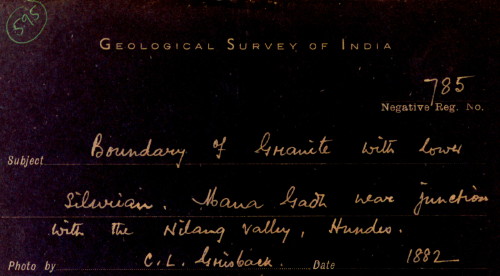 595
GEOLOGICAL SURVEY OF INDIA
785
Negative Reg. No.
Subject Boundary of Granite with lower
Silurian. Mana Gadh near junction
with the Nilang Valley, Hundes.
Photo by C. L. Griesback. Date 1882